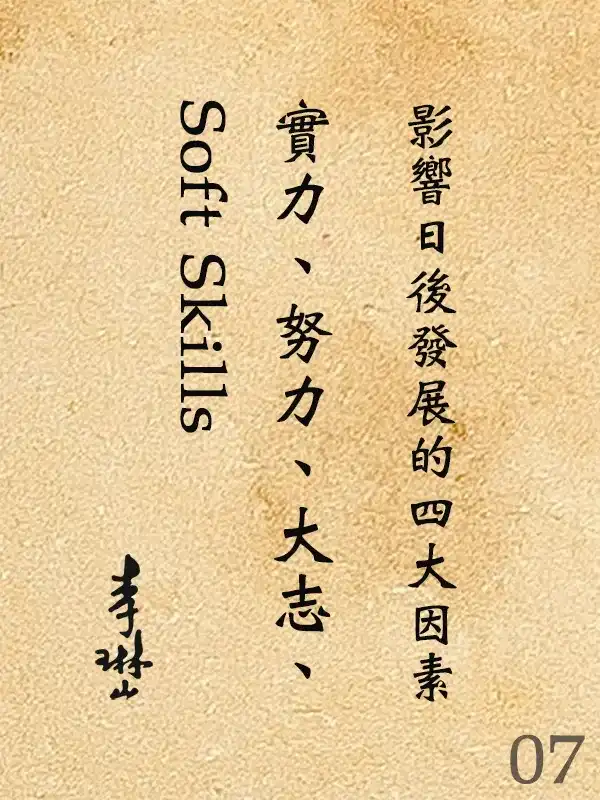 影響日後發展的四大因素
實力、努力、大志、
Soft Skills
李琳山
07